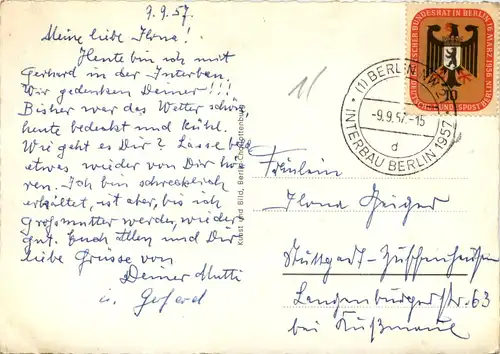 9.9.57.
Meine liebe Ilona!
Heute bin ich mit
Gerhard in der Interbau.
Wir gedenken Deiner!!!
Bisher war das Wetter schön
heute bedeckt und kühl.
Wie geht es Dir? Lasse bald
etwas wieder von Dir hö-
ren. Ich bin schrecklich
erkältet, ist aber, bis ich
Großmutter werde, wieder
gut. Euch Allen und Dir
liebe Grüsse von
Deiner Mutti
u. Gerhard
Kunst und Bild, Berlin-Charlottenburg
11
DEUTSCHER BUNDESRAT IN BERLIN 16. MÄRZ 1956
DEUTSCHE BUNDESPOST BERLIN
10
(1) BERLIN
-9.9.57.-15
d
INTERBAU BERLIN 1957
Fräulein
Ilona Geiger
Stuttgart-Zuffenhausen
Langenburgerstr. 63
bei Kußmaul